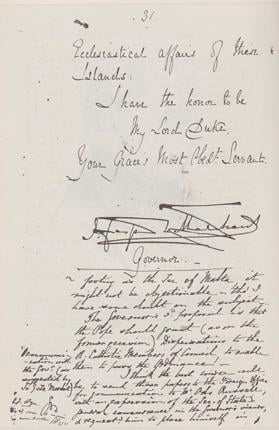 31.
Ecclesiastical affairs of these
Islands.
I have the honor to be
My Lord Duke,
Your Grace's Most Obedt. Servant.
Governor.
footing in the See of Malta, it
might not be objectionable — this I
have some doubt on the subject.
The Governor's 3d. proposal is that
the Pope should grant (as on the
former occasion) Dispensations to the
R. Catholic Members of Council, to enable
them to pass the Ordinance.
I think the best course will
be to send these papers to the Foreign Office
for communication to Mr. Odo Russell
with an expression of the Sec. of State's
general concurrence in the Governor's views,
& request him to place himself in
communi-
cation with
the Govr. (as
suggested by